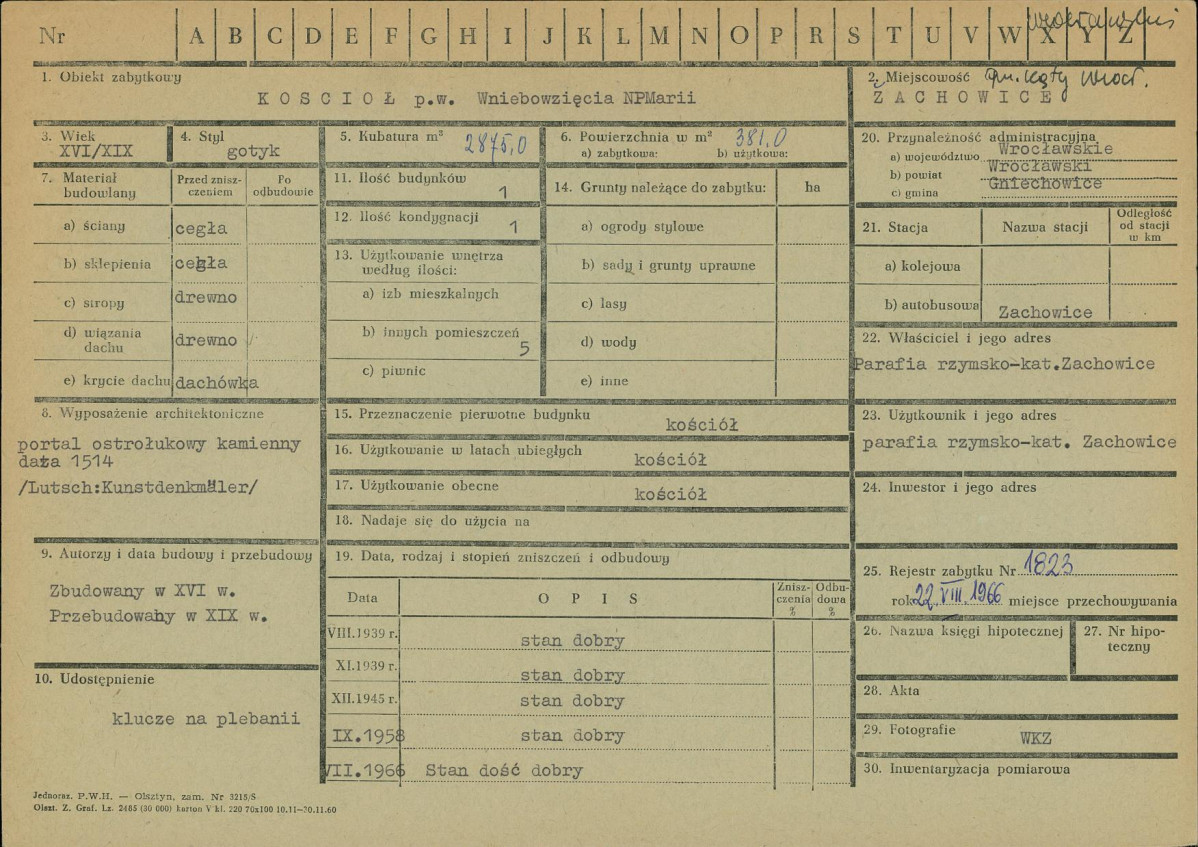 Nr A B C D E F G H I J K L M N O P R S T U V W X Y Z
1. Obiekt zabytkowy
KOSCIOŁ p.w. Wniebowzięcia NPMarii
2. Miejscowość gm. Kąty Wrocł.
ZACHOWICE
3. Wiek
XVI/XIX
4. Styl
gotyk
5. Kubatura m³ 2875,0
6. Powierzchnia w m² 381,0
a) zabytkowa: b) użytkowa:
7. Materiał budowlany
Przed zniszczeniem
Po odbudowie
a) ściany cegła
b) sklepienia cegła
c) stropy drewno
d) wiązania dachu drewno
e) krycie dachu dachówka
8. Wyposażenie architektoniczne
portal ostrołukowy kamienny
data 1514
/Lutsch:Kunstdenkmäler/
9. Autorzy i data budowy i przebudowy
Zbudowany w XVI w.
Przebudowany w XIX w.
10. Udostępnienie
klucze na plebanii
11. Ilość budynków
1
12. Ilość kondygnacji
1
13. Użytkowanie wnętrza
według ilości:
a) izb mieszkalnych
b) innych pomieszczeń
5
c) piwnic
14. Grunty należące do zabytku: ha
a) ogrody stylowe
b) sady i grunty uprawne
c) lasy
d) wody
e) inne
15. Przeznaczenie pierwotne budynku
kościół
16. Użytkowanie w latach ubiegłych
kościół
17. Użytkowanie obecne
kościół
18. Nadaje się do użycia na
19. Data, rodzaj i stopień zniszczeń i odbudowy
Data OPIS Zniszczenia % Odbudowa %
VIII.1939 r. stan dobry
XI.1939 r. stan dobry
XII.1945 r. stan dobry
IX.1958 stan dobry
VII.1966 Stan dość dobry
20. Przynależność administracyjna
a) województwo Wrocławskie
b) powiat Wrocławski
c) gmina Gniechowice
21. Stacja Nazwa stacji Odległość od stacji w km
a) kolejowa
b) autobusowa Zachowice
22. Właściciel i jego adres
Parafia rzymsko-kat.Zachowice
23. Użytkownik i jego adres
parafia rzymsko-kat. Zachowice
24. Inwestor i jego adres
25. Rejestr zabytku Nr 1823
rok 22 VIII. 1966 miejsce przechowywania
26. Nazwa księgi hipotecznej
27. Nr hipoteczny
28. Akta
29. Fotografie
WKZ
30. Inwentaryzacja pomiarowa
Jednoraz. P.W.H. — Olsztyn, zam. Nr 3215/S
Olszt. Z. Graf. Lz. 2485 (30 000) karton V kl. 220 70x100 10.11—30.11.60